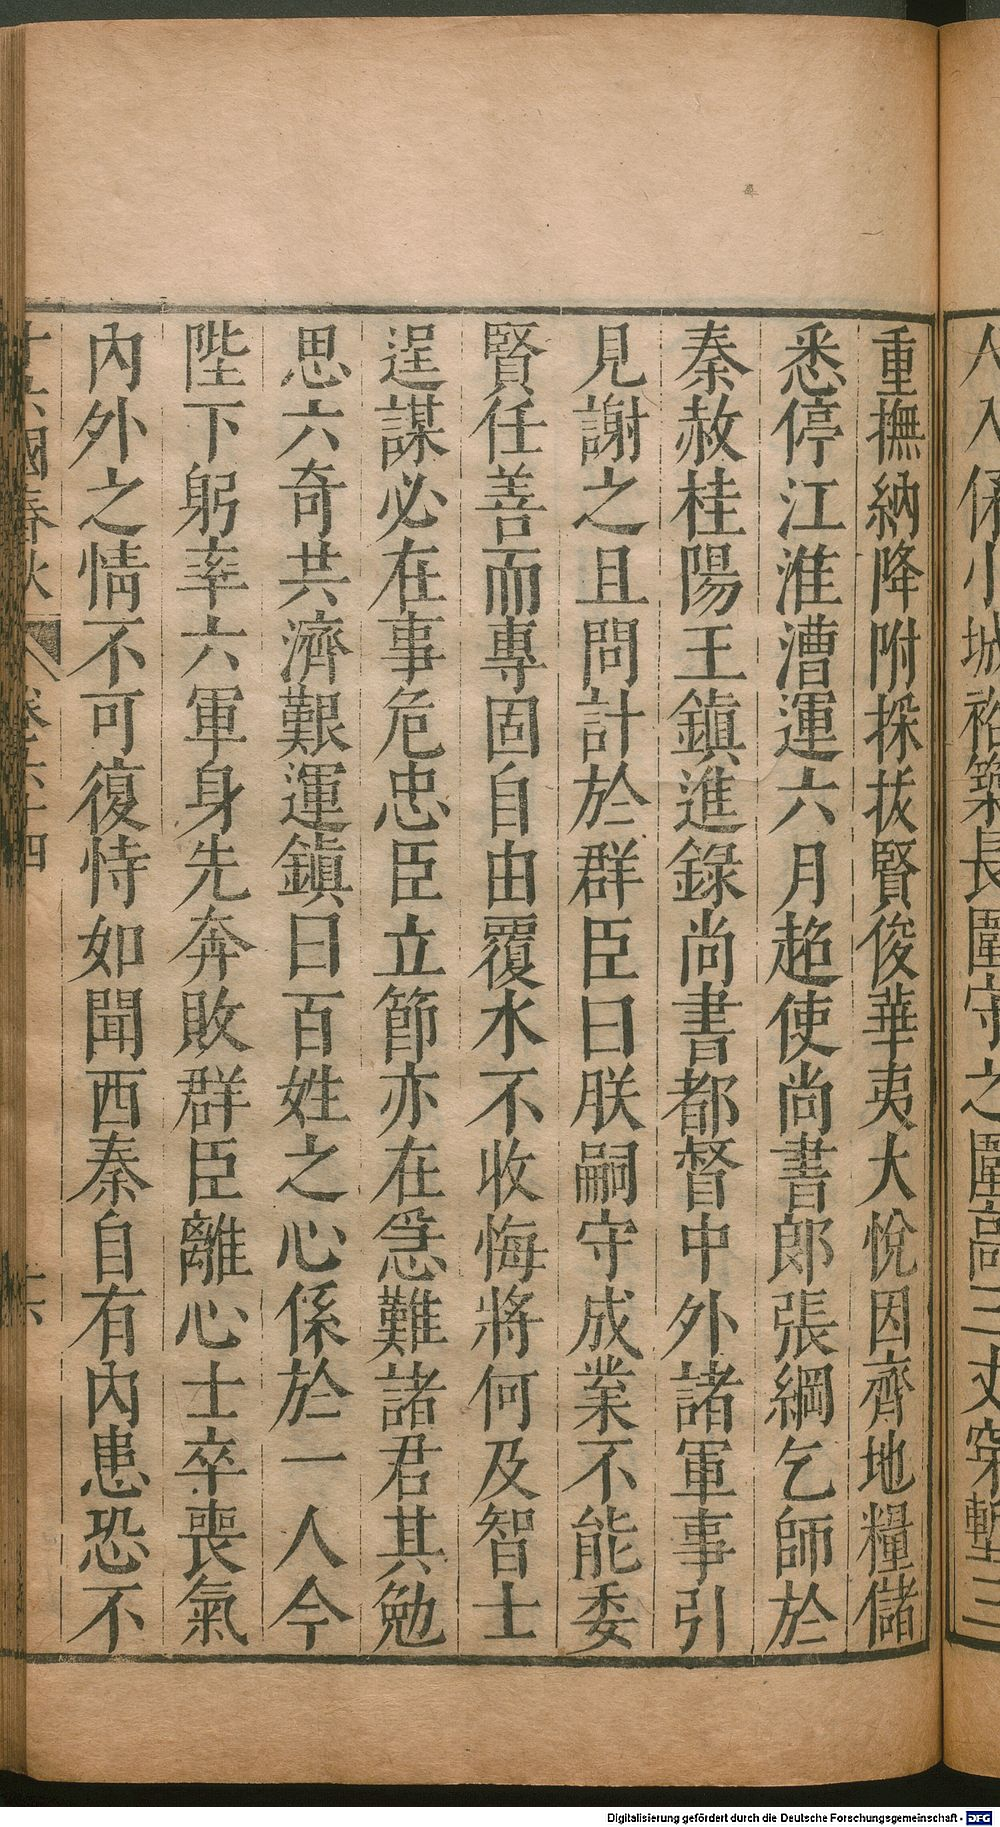 人入保小城裕築長圍守之圍高三丈穿塹三
重撫納降附採拔賢俊華夷大悅因齊地糧儲
悉停江淮漕運六月超使尚書郎張綱乞師於
秦赦桂陽王鎮進錄尚書都督中外諸軍事引
見謝之且問計於群臣曰朕嗣守成業不能委
賢任善而專固自由覆水不收悔將何及智士
逞謀必在事危忠臣立節亦在急難諸君其勉
思六奇共濟艱運鎮曰百姓之心係於一人今
陛下躬率六軍身先奔敗群臣離心士卒喪氣
內外之情不可復恃如聞西秦自有內患恐不
十六國春秋
卷六十四
十六
Digitalisierung gefördert durch die Deutsche Forschungsgemeinschaft - DFG